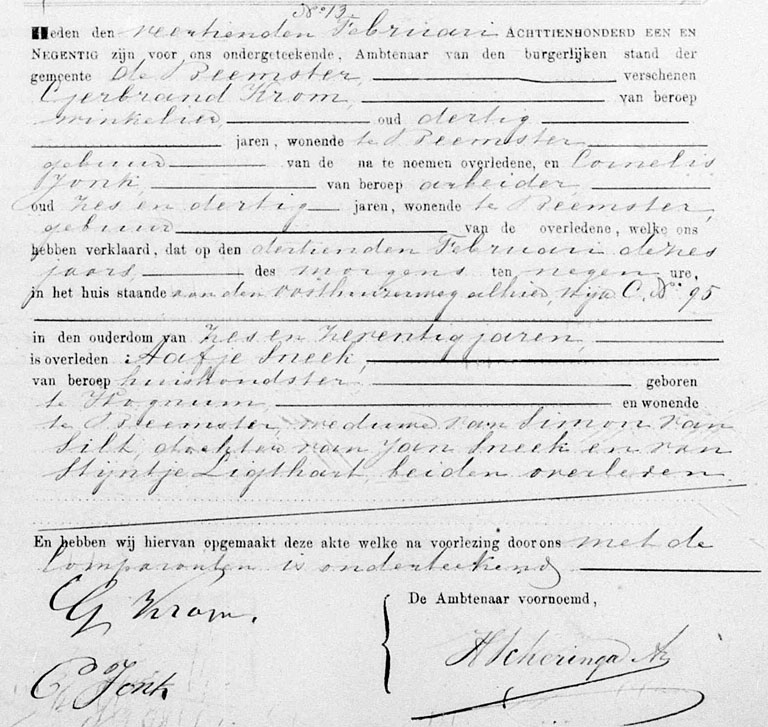 No. 13.
Heden den veertienden Februari ACHTTIENHONDERD EEN EN
NEGENTIG zijn voor ons ondergeteekende, Ambtenaar van den burgerlijken stand der
gemeente de Beemster, verschenen
Gerbrand Krom, van beroep
winkelier, oud dertig
jaren, wonende te Beemster
gebuur van de na te noemen overledene, en Cornelis
Jonk, van beroep arbeider,
oud zes en dertig jaren, wonende te Beemster,
gebuur van de overledene, welke ons
hebben verklaard, dat op den dertienden Februari dezes
jaars, des morgens ten negen ure,
in het huis staande aan den Oosthuizerweg alhier, wijk C. No. 95
in den ouderdom van zes en zeventig jaren,
is overleden : Aafje Sneek,
van beroep huishoudster geboren
te Hognum, en wonende
te Beemster, weduwe van Simon van
Silt, dochter van Jan Sneek en van
Stijntje Ligthart, beiden overleden.
En hebben wij hiervan opgemaakt deze akte welke na voorlezing door ons met de
Comparanten is onderteekend
G Krom.
De Ambtenaar voornoemd,
H Scheringa Az
C Jonk